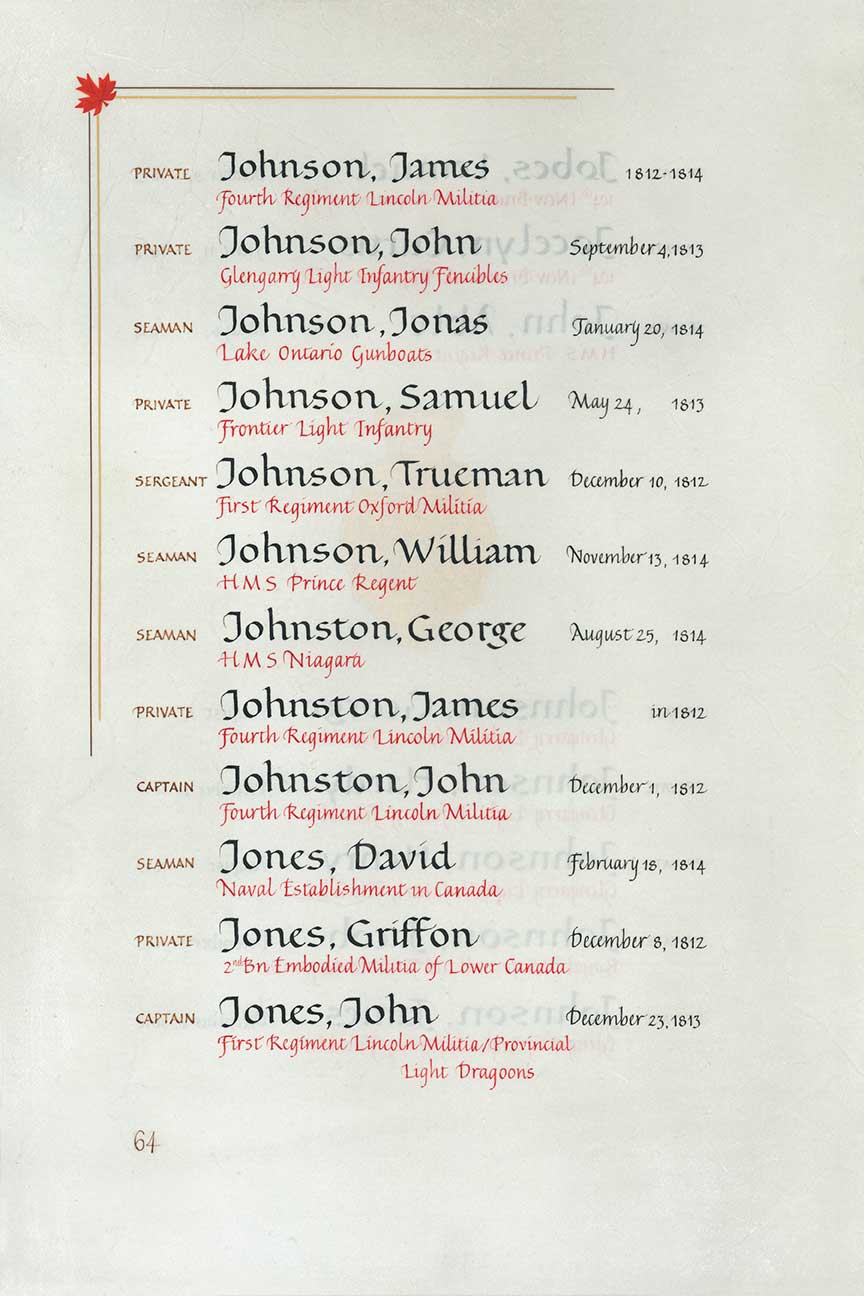 PRIVATE Johnson, James 1812-1814
Fourth Regiment Lincoln Militia
PRIVATE Johnson, John September 4, 1813
Glengarry Light Infantry Fencibles
SEAMAN Johnson, Jonas January 20, 1814
Lake Ontario Gunboats
PRIVATE Johnson, Samuel May 24, 1813
Frontier Light Infantry
SERGEANT Johnson, Trueman December 10, 1812
First Regiment Oxford Militia
SEAMAN Johnson, William November 13, 1814
HMS Prince Regent
SEAMAN Johnston, George August 25, 1814
HMS Niagara
PRIVATE Johnston, James in 1812
Fourth Regiment Lincoln Militia
CAPTAIN Johnston, John December 1, 1812
Fourth Regiment Lincoln Militia
SEAMAN Jones, David February 18, 1814
Naval Establishment in Canada
PRIVATE Jones, Griffon December 8, 1812
2nd Bn Embodied Militia of Lower Canada
CAPTAIN Jones, John December 23, 1813
First Regiment Lincoln Militia/Provincial
Light Dragoons
64